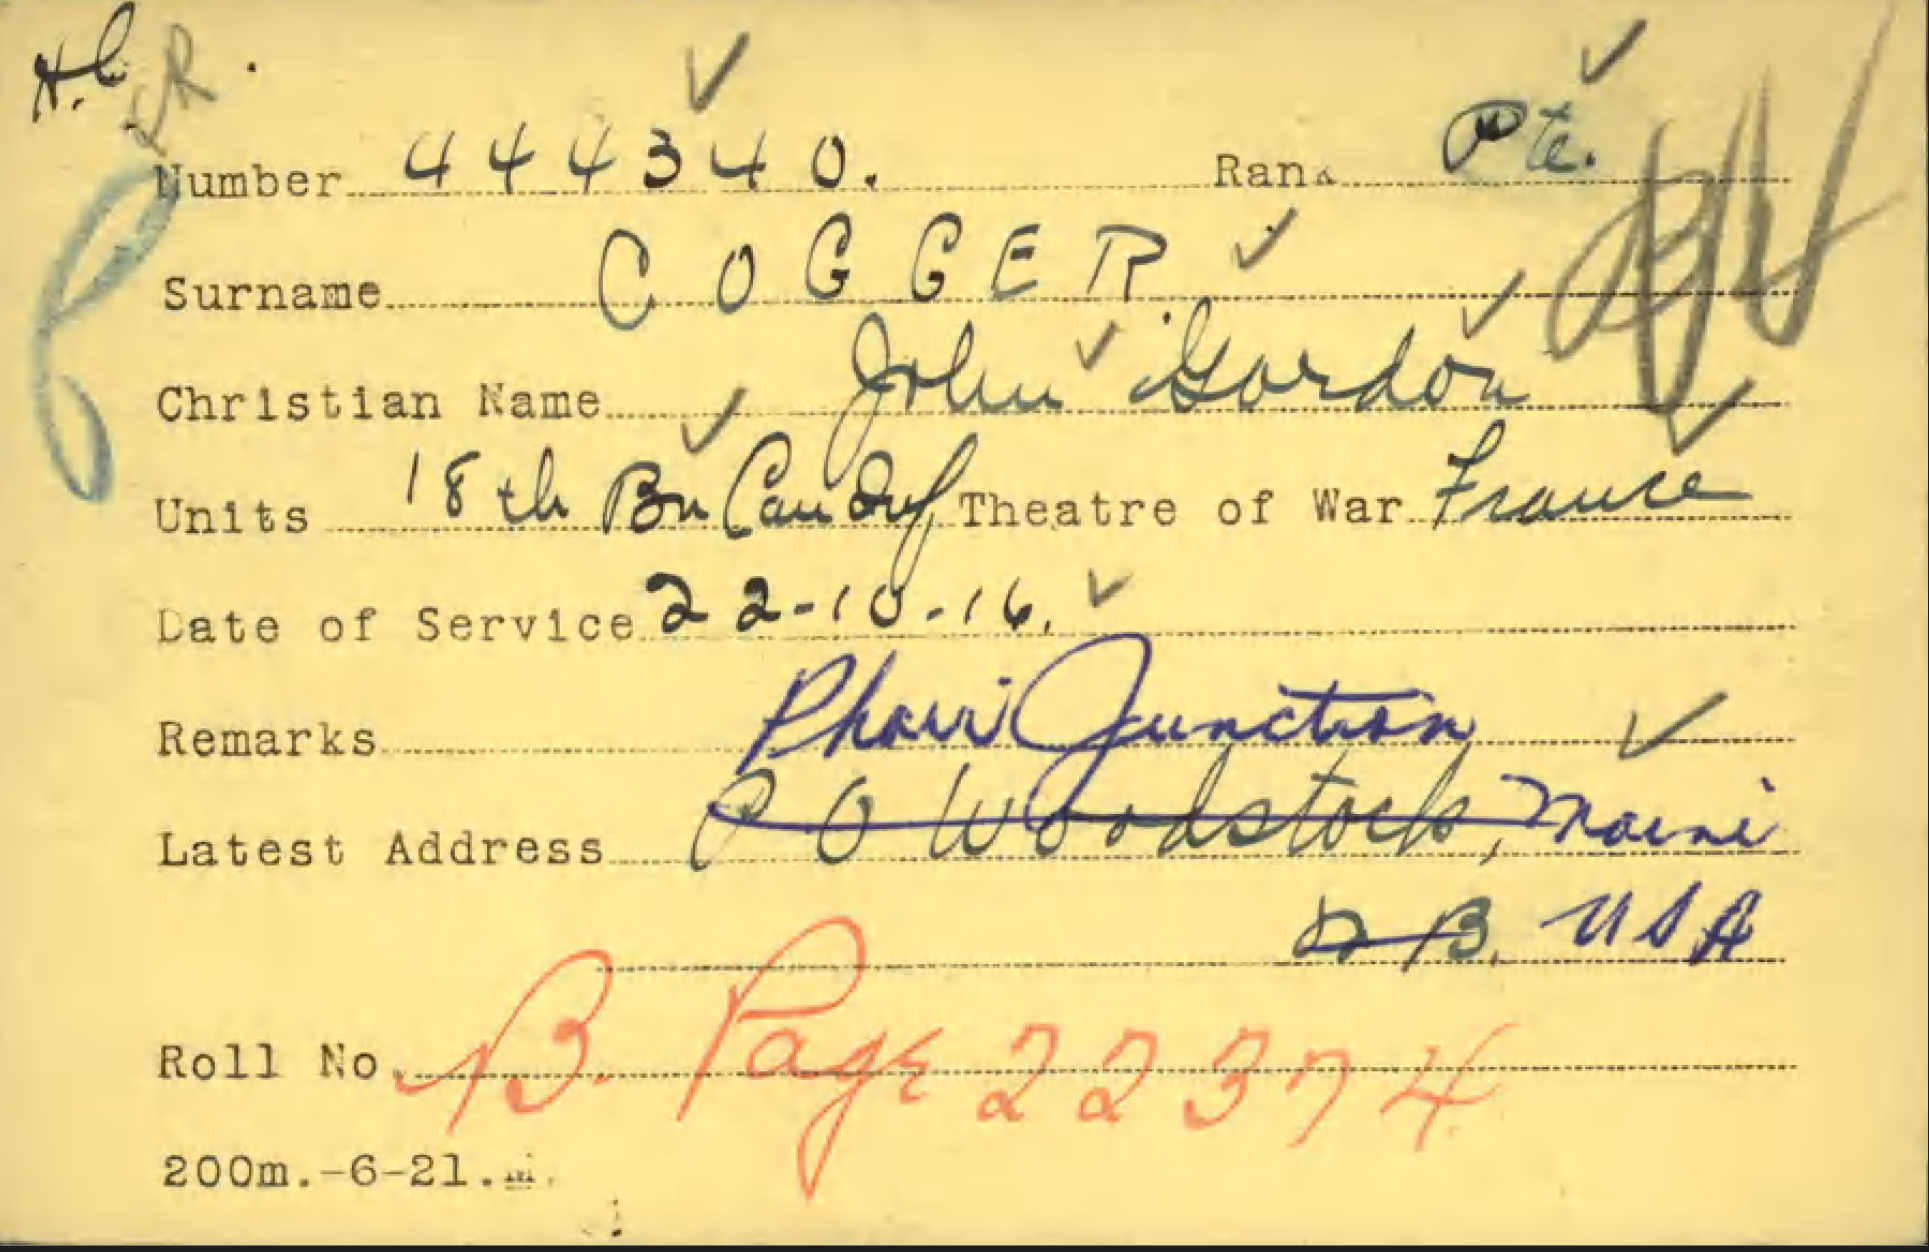 H.C
LR.
Number 444340. Rank Pte.
Surname COGGER
Christian Name John Gordon
Units 18th Bn Can Inf Theatre of War France
Date of Service 22-10-16.
Remarks Phair Junction
Latest Address P O Woodstock, Maine
N B. USA
Roll No. B. Page 22374
200m.-6-21.